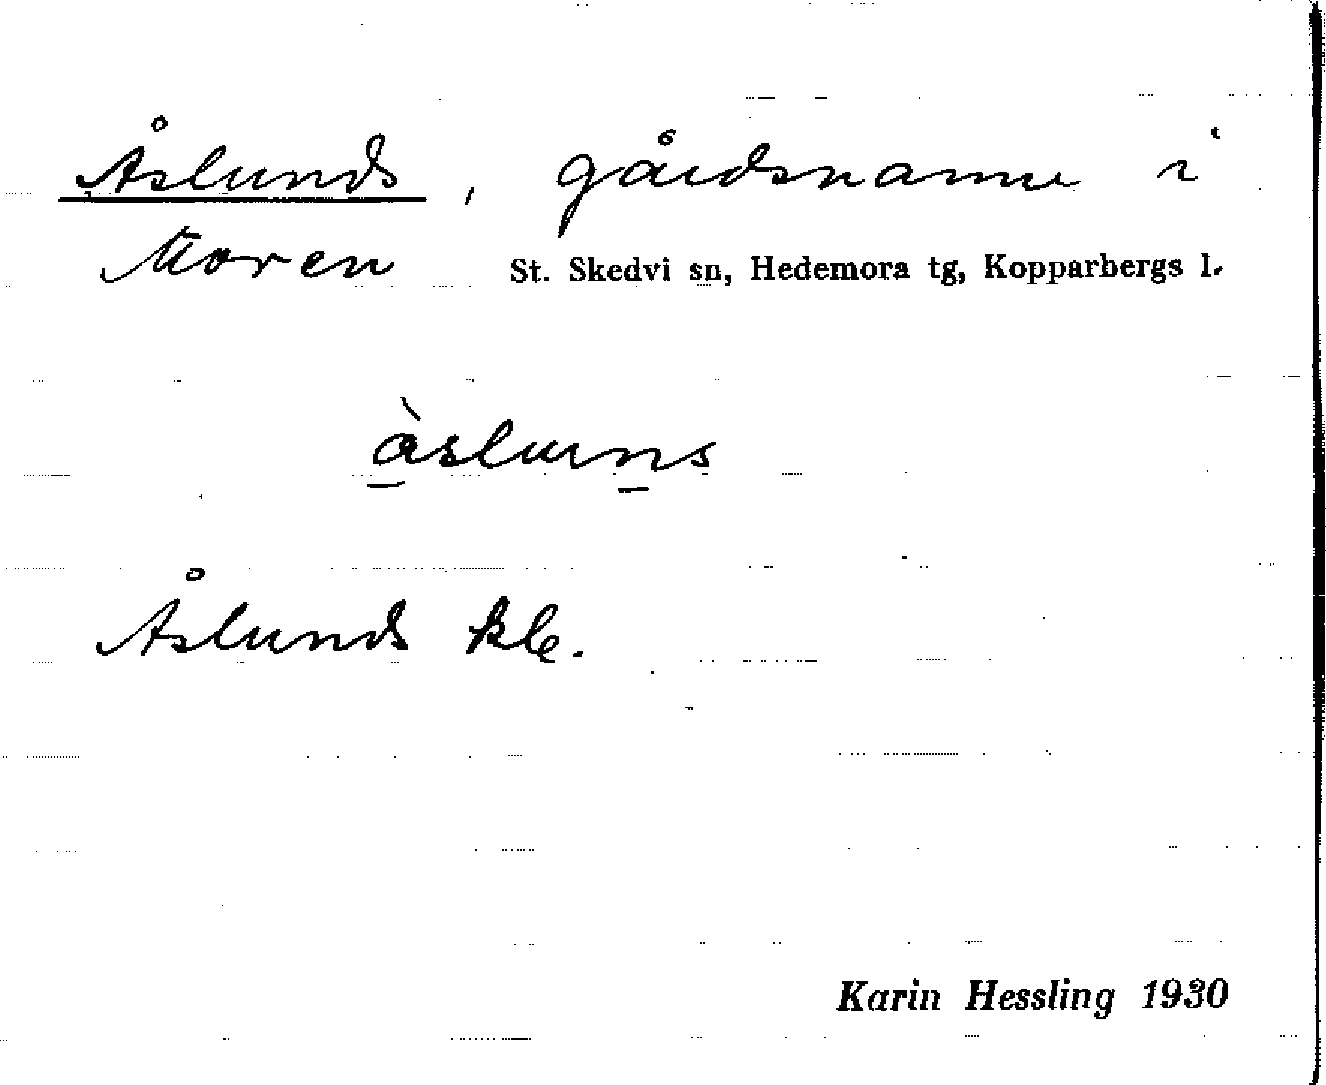 Åslunds, gårdsnamn i
Moren St. Skedvi sn, Hedemora tg, Kopparbergs l.
àsluns
Åslunds kle.
Karin Hessling 1930